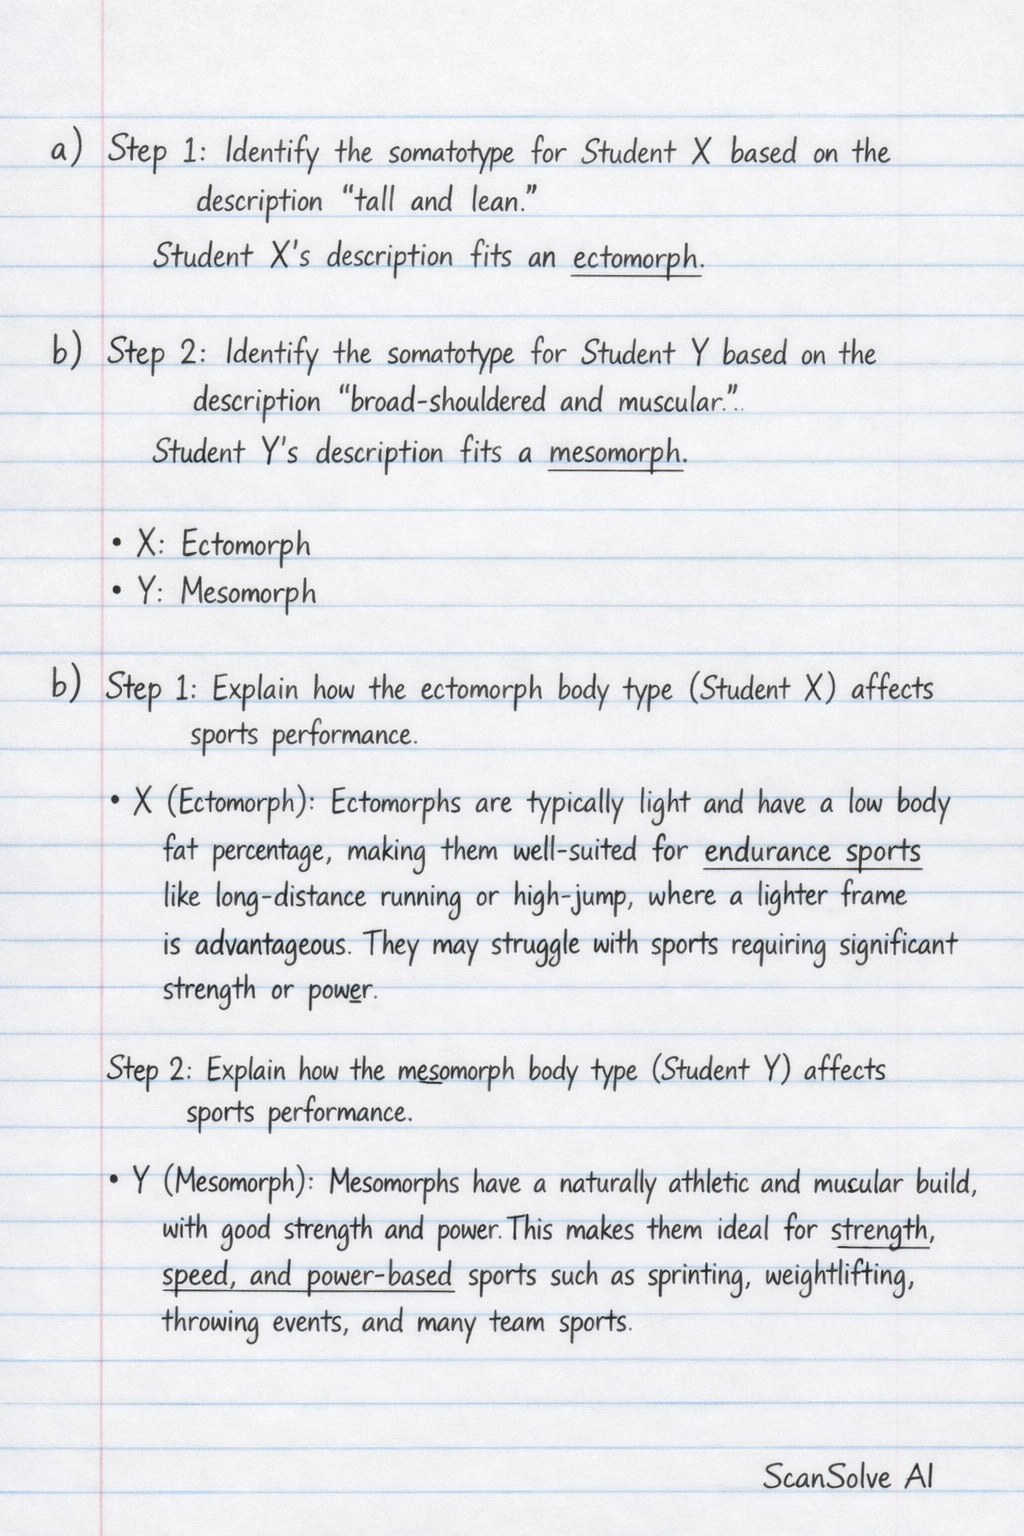 a) Step 1: Identify the somatotype for Student X based on the
description “tall and lean.”
Student X's description fits an ectomorph.
b) Step 2: Identify the somatotype for Student Y based on the
description “broad-shouldered and muscular.”..
Student Y's description fits a mesomorph.
• X: Ectomorph
• Y: Mesomorph
b) Step 1: Explain how the ectomorph body type (Student X) affects
sports performance.
• X (Ectomorph): Ectomorphs are typically light and have a low body
fat percentage, making them well-suited for endurance sports
like long-distance running or high-jump, where a lighter frame
is advantageous. They may struggle with sports requiring significant
strength or power.
Step 2: Explain how the mesomorph body type (Student Y) affects
sports performance.
• Y (Mesomorph): Mesomorphs have a naturally athletic and muscular build,
with good strength and power. This makes them ideal for strength,
speed, and power-based sports such as sprinting, weightlifting,
throwing events, and many team sports.
ScanSolve AI